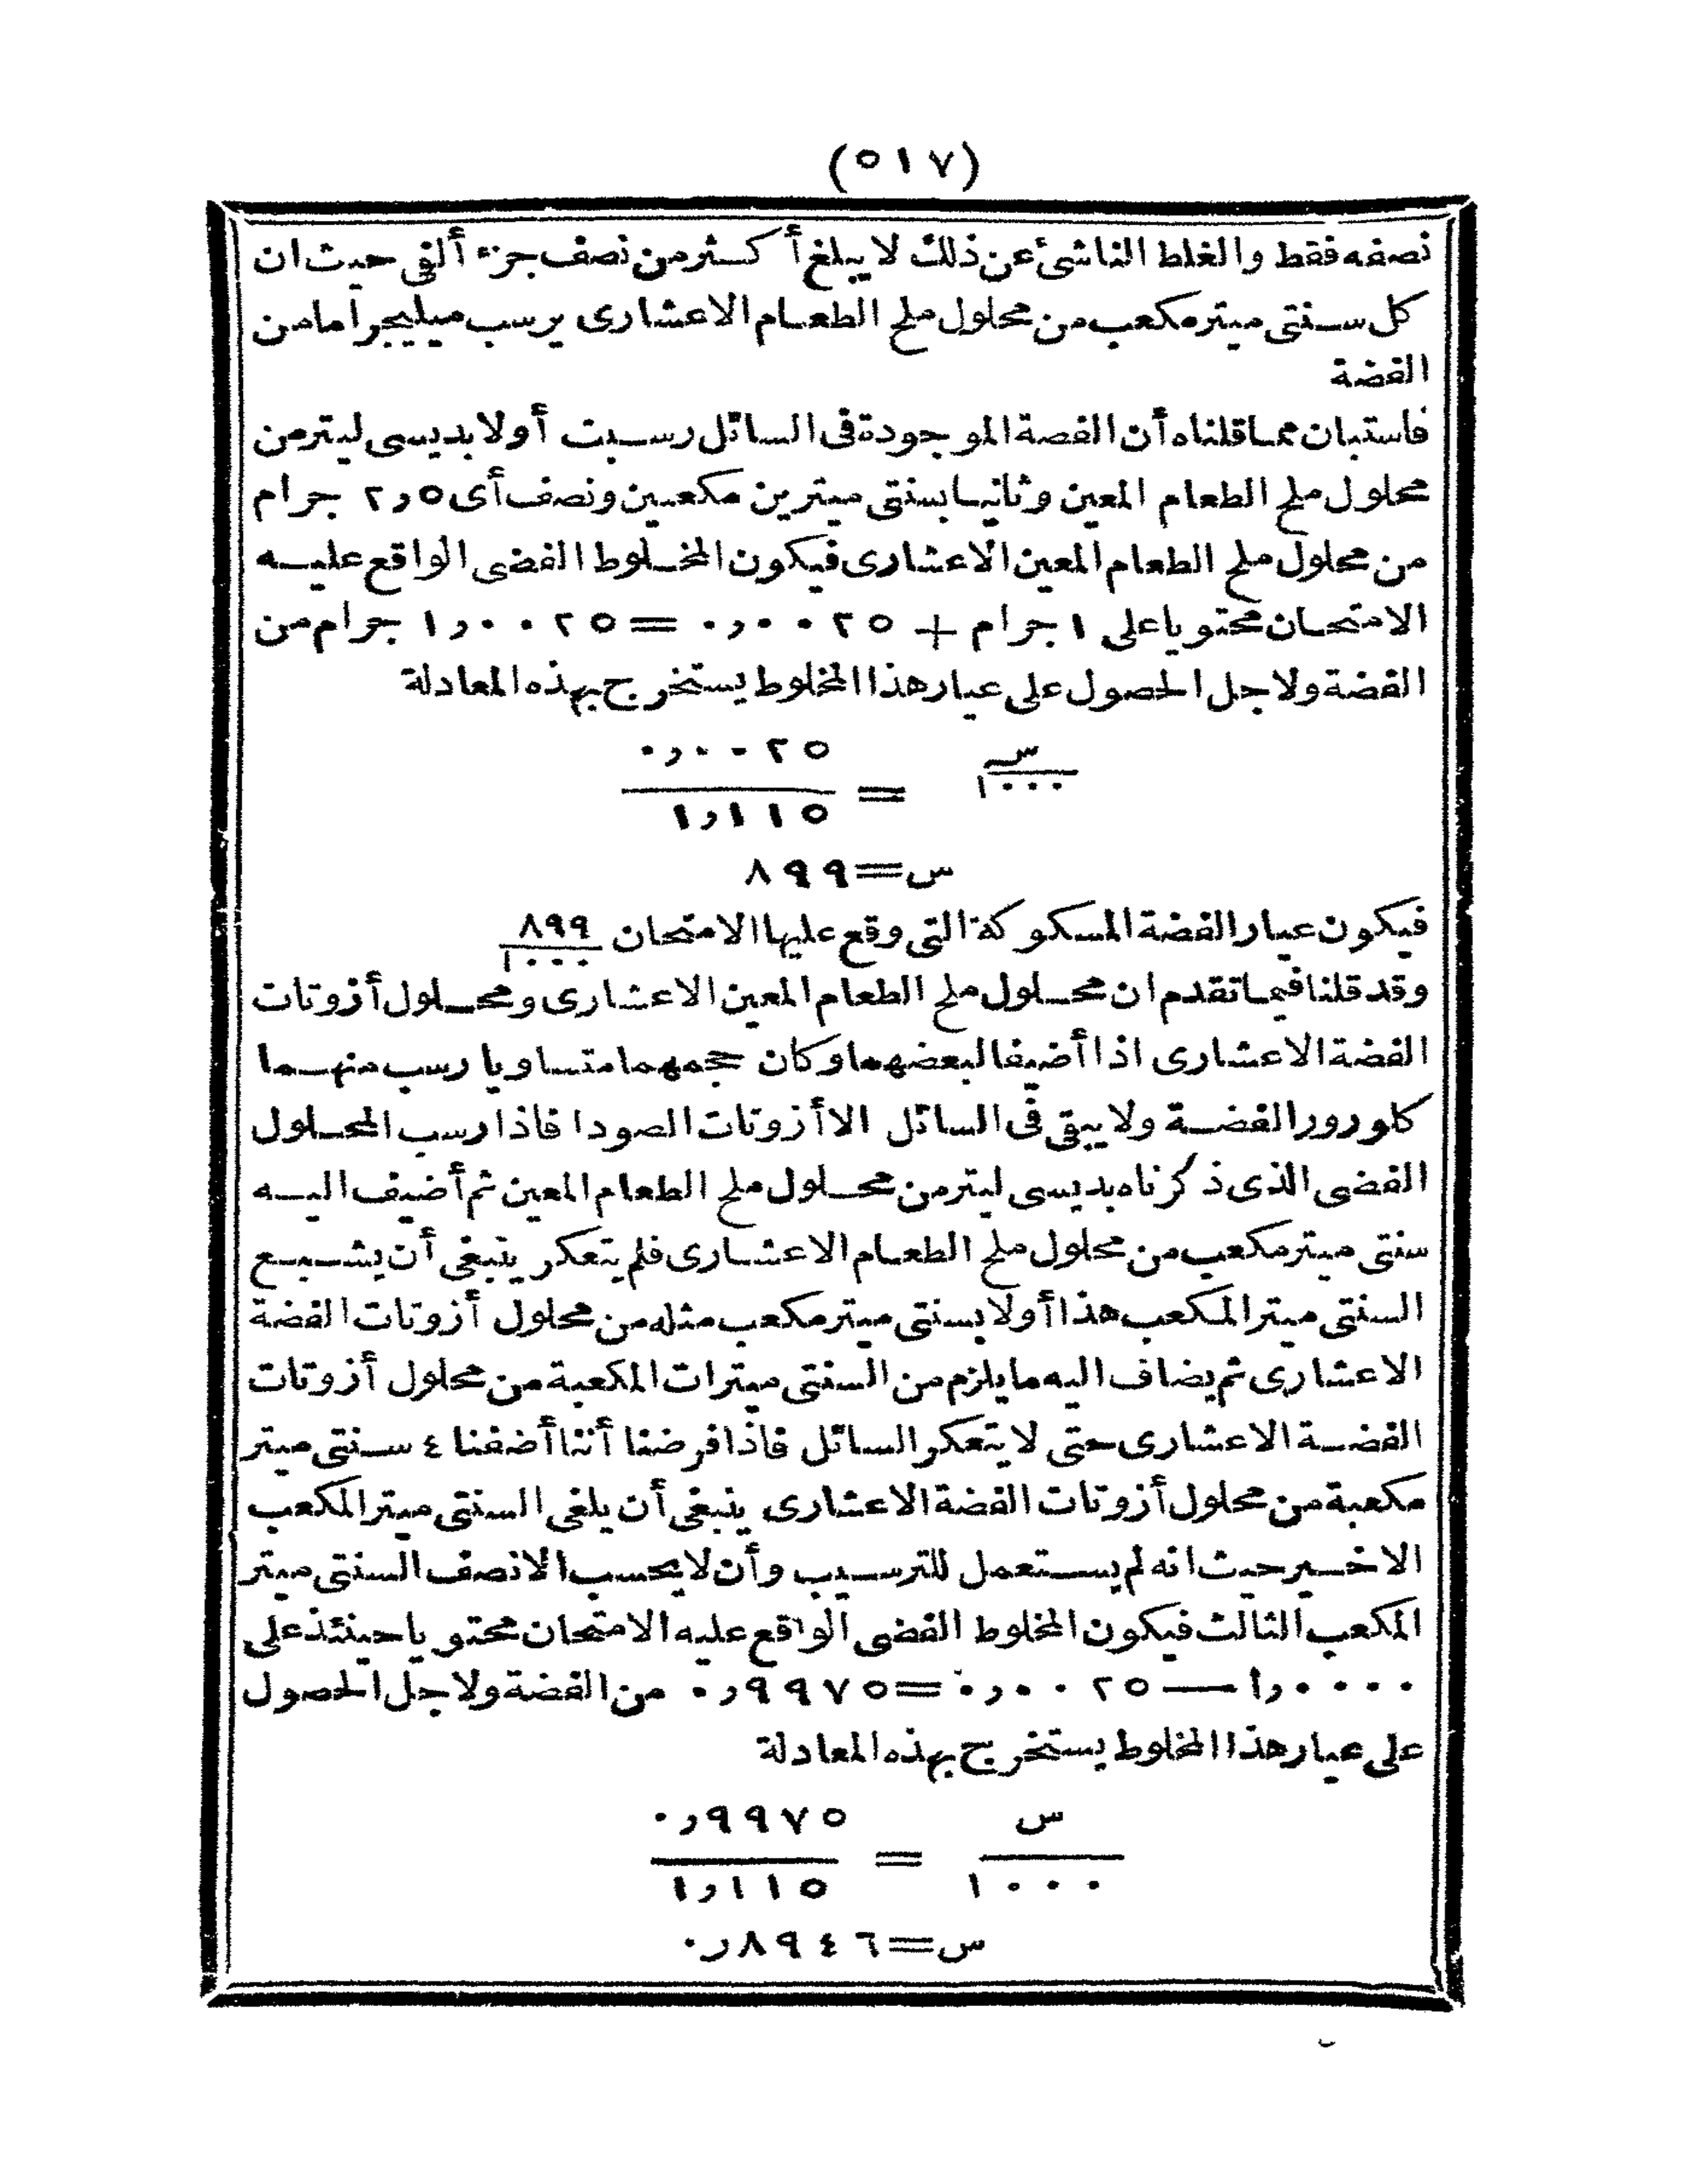 (٥١٧)
نصفه فقط والغلط الناشئ عن ذلك لا يبلغ أكثر من نصف جزء ألفى حيث ان
كل سنتى ميتر مكعب من محلول ملح الطعام الاعشارى يرسب ميليجراما من
الفضة
فاستبان مما قلناه أن الفضة الموجودة فى السائل رسبت أولا بديسى ليتر من
محلول ملح الطعام المعين وثانيا بسنتى ميترين مكعبين ونصف أى ٢٫٥ جرام
من محلول ملح الطعام المعين الاعشارى فيكون المخلوط الفضى الواقع عليه
الامتحان محتويا على ١ جرام + ٠٫٠٠٢٥ = ١٫٠٠٢٥ جرام من
الفضة ولاجل الحصول على عيار هذا المخلوط يستخرج بهذه المعادلة
س/١٠٠٠ = ٠٫٠٠٢٥/١٫١١٥
س = ٨٩٩
فيكون عيار الفضة المسكوكة التى وقع عليها الامتحان ٨٩٩/١٠٠٠
وقد قلنا فيما تقدم ان محلول ملح الطعام المعين الاعشارى ومحلول أزوتات
الفضة الاعشارى اذا أضيفا لبعضهما وكان حجمهما متساويا رسب منهما
كلورور الفضة ولا يبقى فى السائل الا أزوتات الصودا فاذا رسب المحلول
الفضى الذى ذكرناه بديسى ليتر من محلول ملح الطعام المعين ثم أضيف اليه
سنتى ميتر مكعب من محلول ملح الطعام الاعشارى فلم يتعكر ينبغى أن يشبع
السنتى ميتر المكعب هذا أولا بسنتى ميتر مكعب مثله من محلول أزوتات الفضة
الاعشارى ثم يضاف اليه ما يلزم من السنتى ميترات المكعبة من محلول أزوتات
الفضة الاعشارى حتى لا يتعكر السائل فاذا فرضنا أننا أضفنا ٤ سنتى ميتر
مكعبة من محلول أزوتات الفضة الاعشارى ينبغى أن يلغى السنتى ميتر المكعب
الاخير حيث انه لم يستعمل للترسيب وأن لا يحسب الا نصف السنتى ميتر
المكعب الثالث فيكون المخلوط الفضى الواقع عليه الامتحان محتويا حينئذ على
١٫٠٠٠٠ — ٠٫٠٠٢٥ = ٠٫٩٩٧٥ من الفضة ولاجل الحصول
على عيار هذا المخلوط يستخرج بهذه المعادلة
س/١٠٠٠ = ٠٫٩٩٧٥/١٫١١٥
س = ٠٫٨٩٤٦